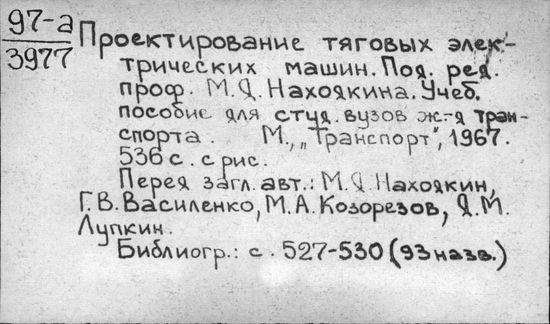 97-а
3977
Проектирование тяговых элек-
трических машин. Под. ред.
проф. М.Д. Находкина. Учеб.
пособие для студ. вузов ж.-д тран-
спорта. М., „Транспорт", 1967.
536 с. с рис.
Перед загл. авт.: М.Д Находкин,
Г.В. Василенко, М.А. Козорезов, Д.М.
Лупкин.
Библиогр.: с. 527-530 (93 назв.)